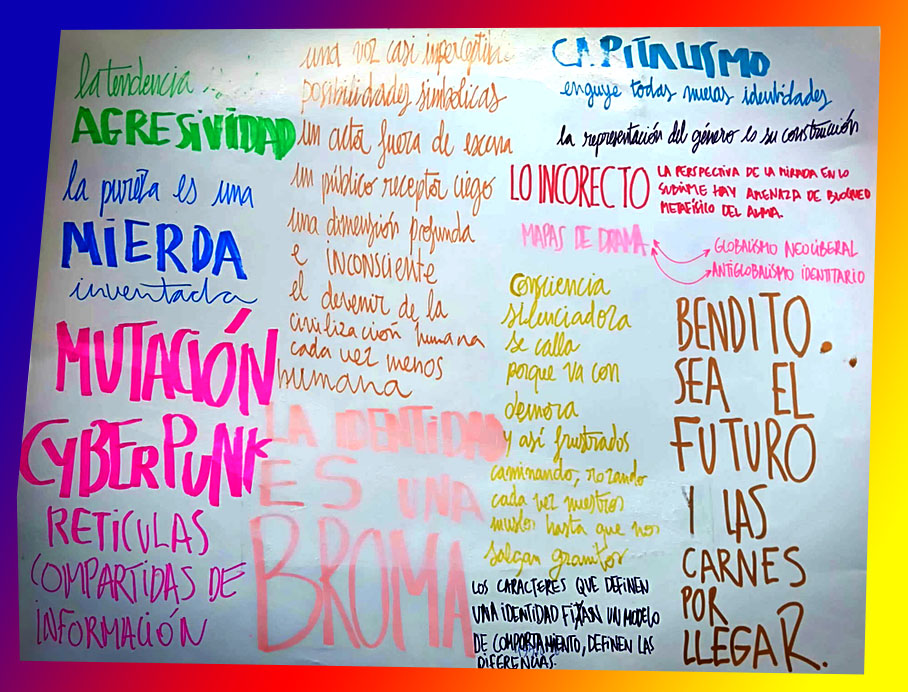 la tendencia
AGRESIVIDAD
la pureza es una
MIERDA
inventada
MUTACIÓN
CYBERPUNK
RETICULAS
COMPARTIDAS DE
INFORMACIÓN
una voz casi imperceptible
posibilidades simbólicas
un acto fuera de escena
un público receptor ciego
una dimensión profunda
e INCONSCIENTE
el devenir de la
civilización humana
cada vez menos
humana
LA IDENTIDAD
ES UNA
BROMA
CAPITALISMO
engulle todas nuevas identidades
la representación del género es su construcción
LO INCORECTO
LA PERSPECTIVA DE LA MIRADA EN LO
SUBLIME HAY AMENAZA DE BLOQUEO
METAFÍSICO DEL ALMA.
MAPAS DE DRAMA
GLOBALISMO NEOLIBERAL
ANTIGLOBALISMO IDENTITARIO
Consciencia
silenciadora
se calla
porque va con
demora
y así frustrados
caminando, rozando
cada vez nuestros
muslos hasta que nos
salgan granitos
LOS CARACTERES QUE DEFINEN
UNA IDENTIDAD FIJAN UN MODELO
DE COMPORTAMIENTO, DEFINEN LAS
DIFERENCIAS.
BENDITO.
SEA EL
FUTURO
Y LAS
CARNES
POR
LLEGAR.